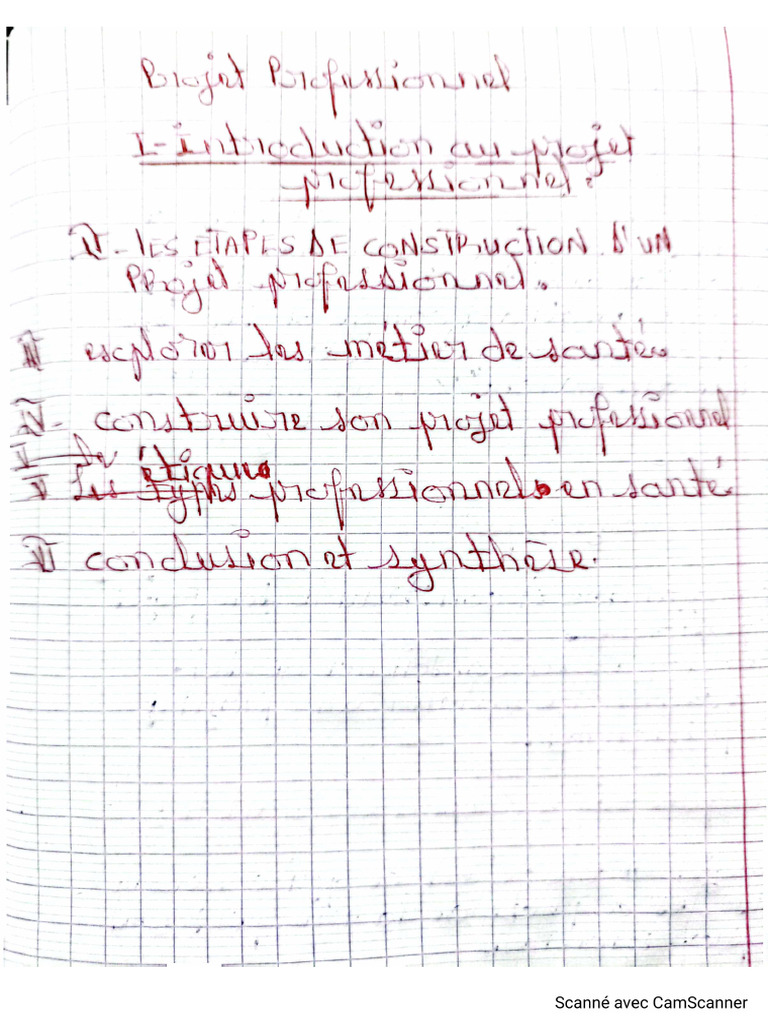 Projet Professionnel
I-Introduction au projet
professionnel.
II-LES ETAPES DE CONSTRUCTION D'UN
PROjet professionnel.
III explorer les métier de santé.
IV- construire son projet professionnel
V De
étique
V Les types professionnels en santé
VI conclusion et synthèse.
Scanné avec CamScanner